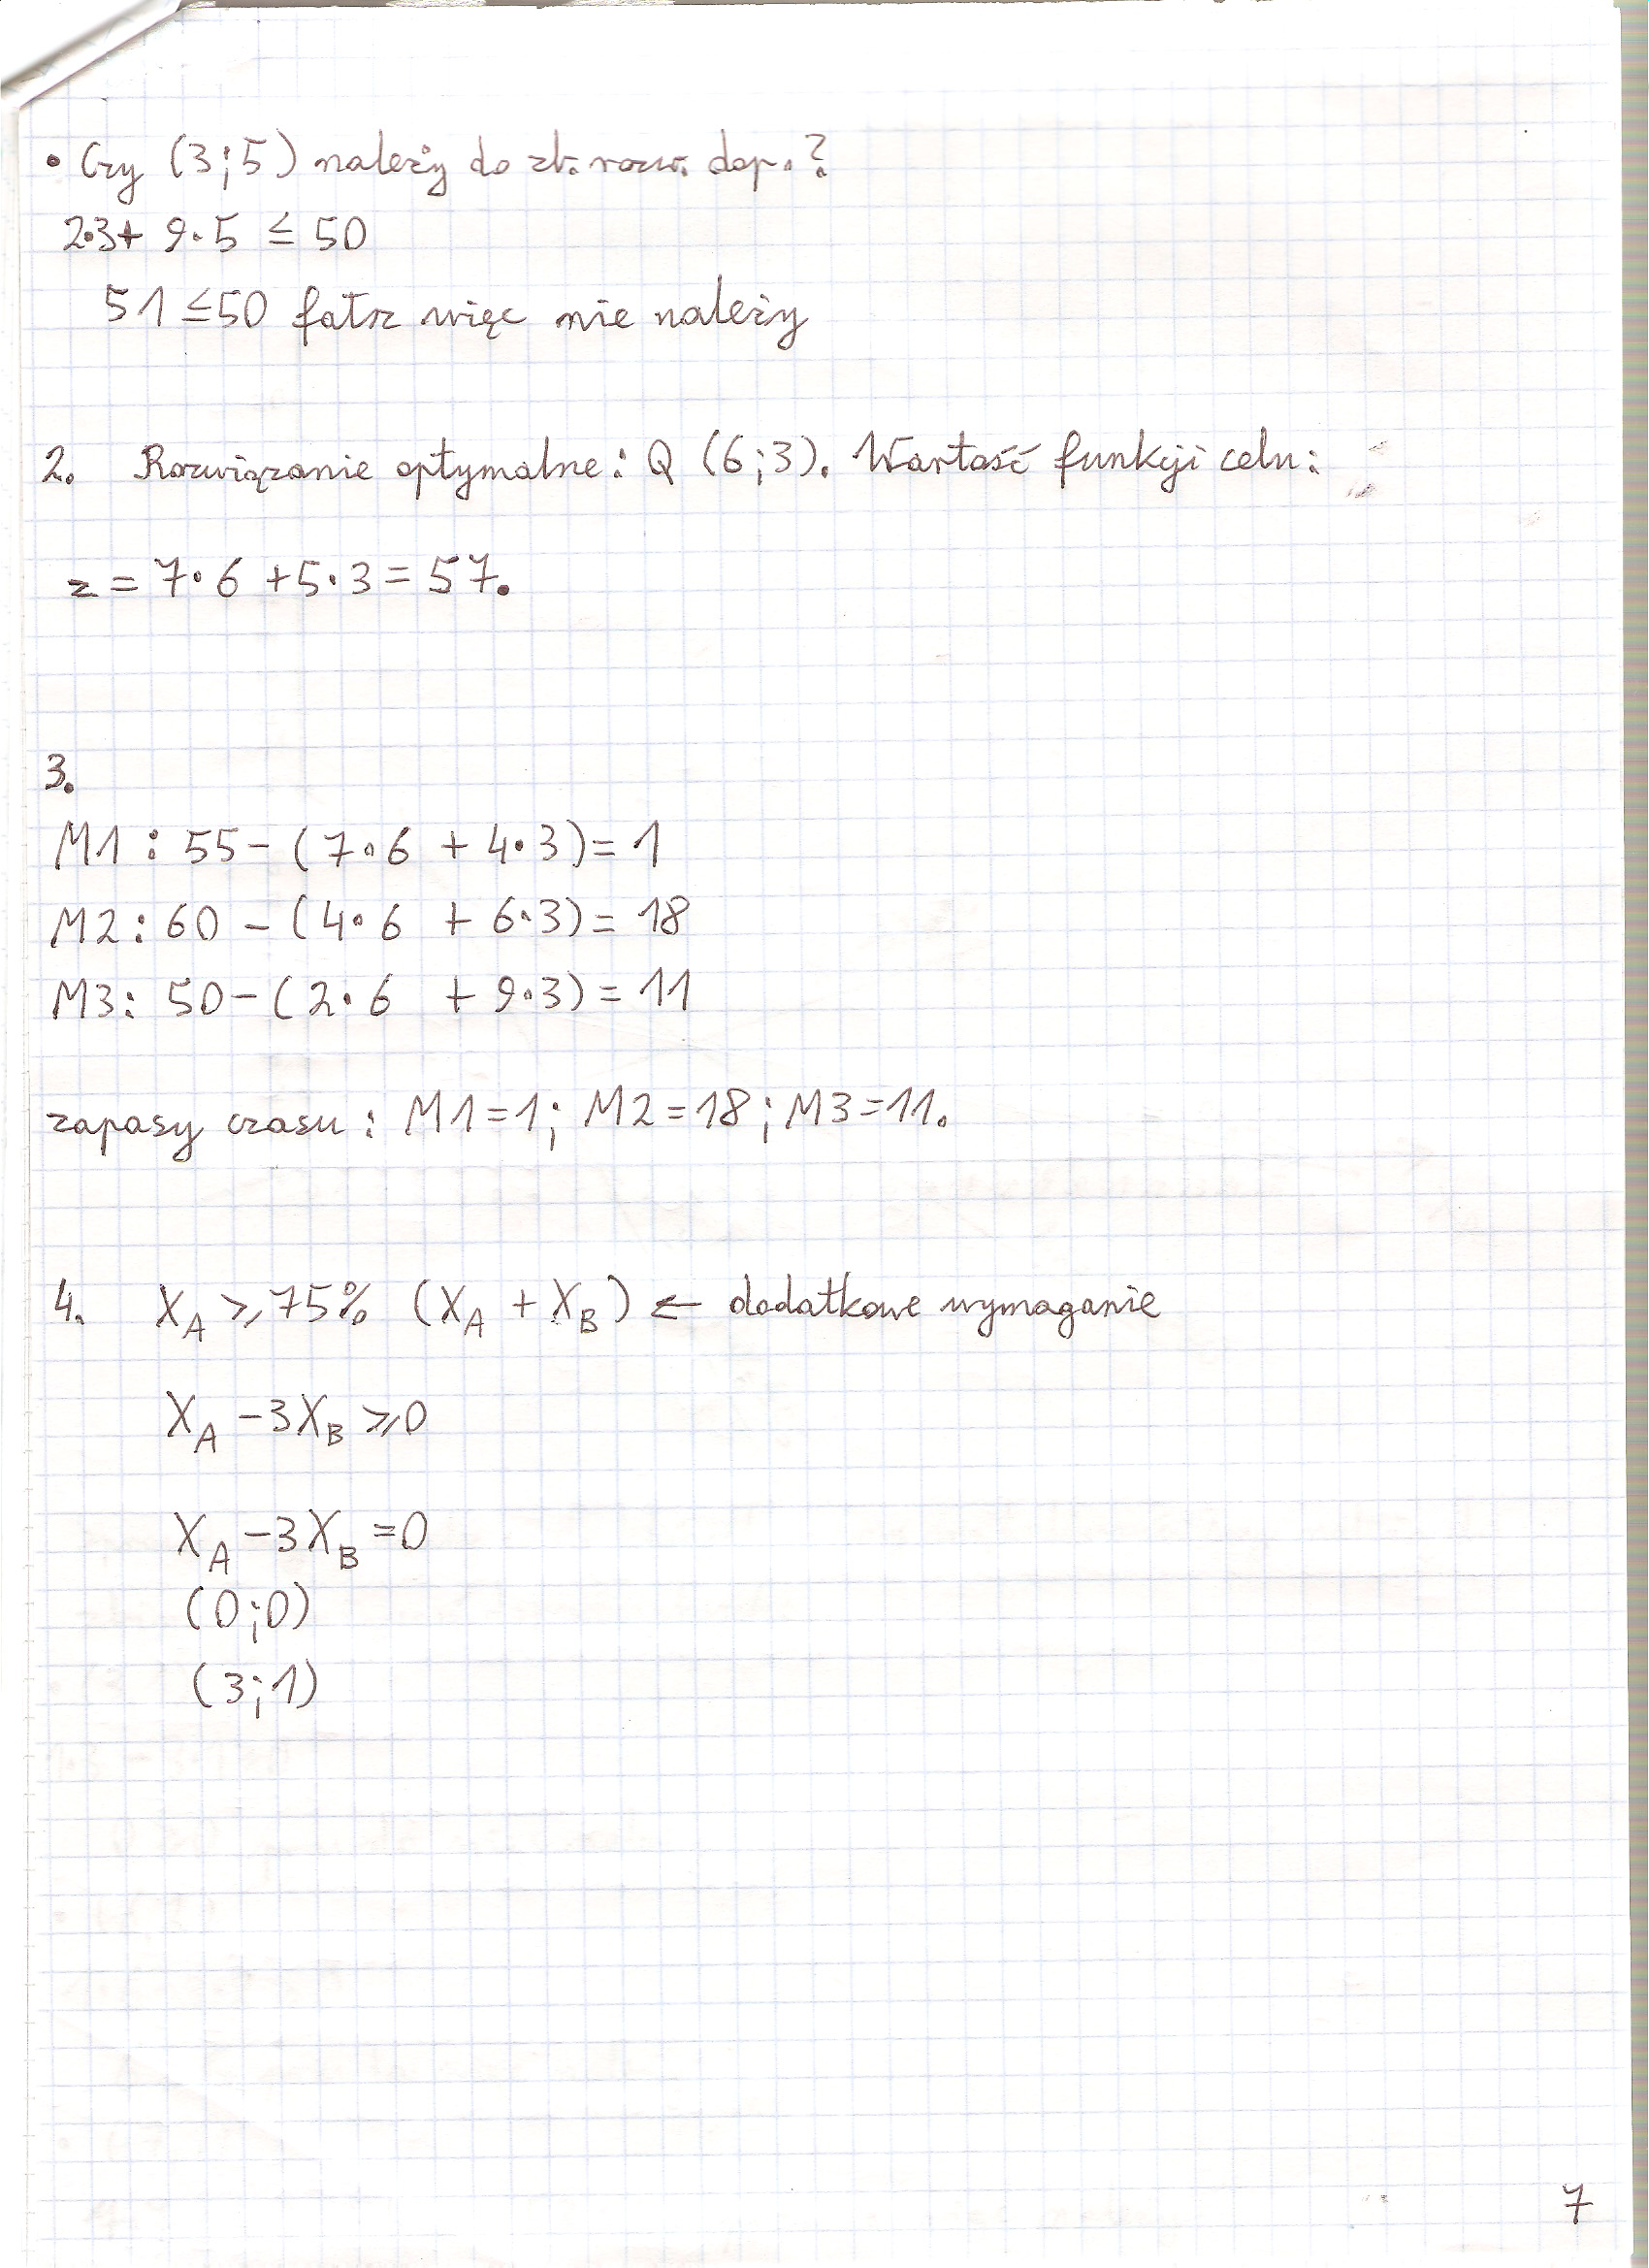 • Czy (3;5) należy do zb. rozw. dop.?
2·3+ 9·5 ≤ 50
51 ≤50 fałsz więc nie należy
2. Rozwiązanie optymalne: Q (6;3). Wartość funkcji celu:
z = 7·6 +5·3 = 57.
3.
M1 : 55 - (7·6 + 4·3) = 1
M2 : 60 - (4·6 + 6·3) = 18
M3 : 50 - (2·6 + 9·3) = 11
zapasy czasu : M1=1; M2=18; M3=11.
4. X_A ≥ 75% (X_A + X_B) ← dodatkowe wymaganie
X_A -3X_B ≥ 0
X_A -3X_B = 0
(0;0)
(3;1)
7